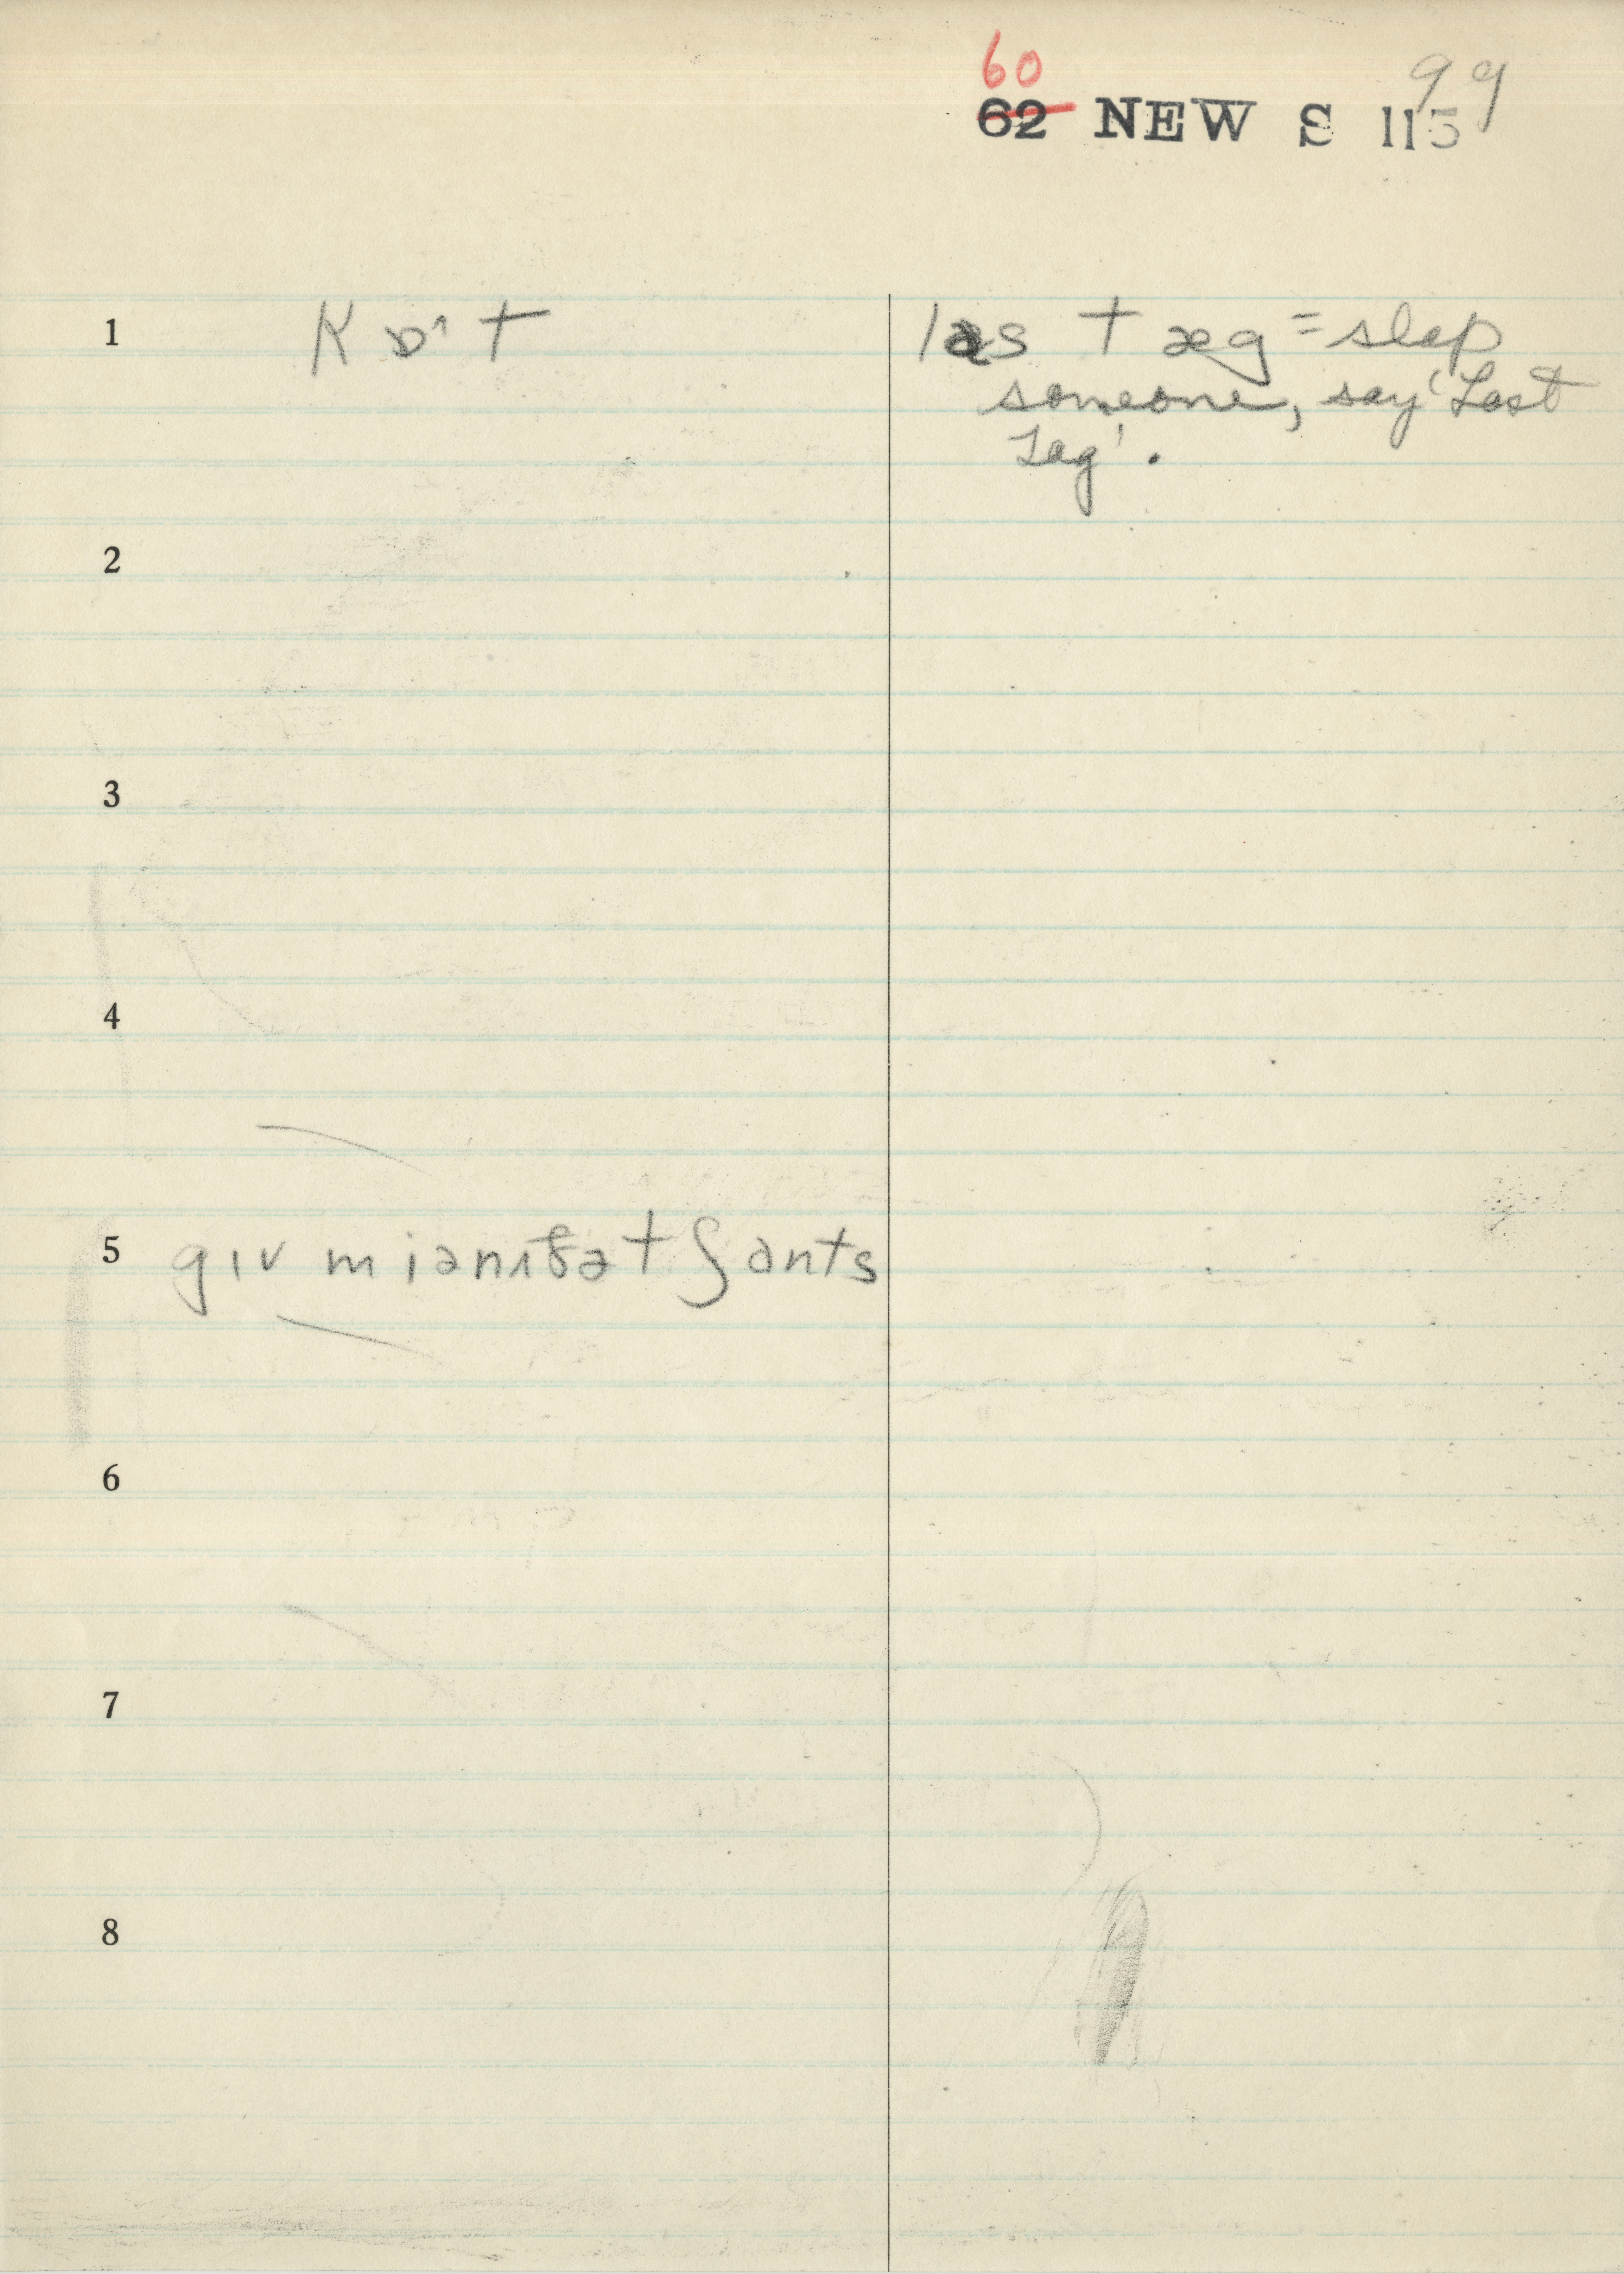 60
99
62 NEW S 115
1 kɒ˄t
læs tæg = slap
someone, say 'Last
Tag'.
2
3
4
5 gɪv miənɪðət ʃants
6
7
8